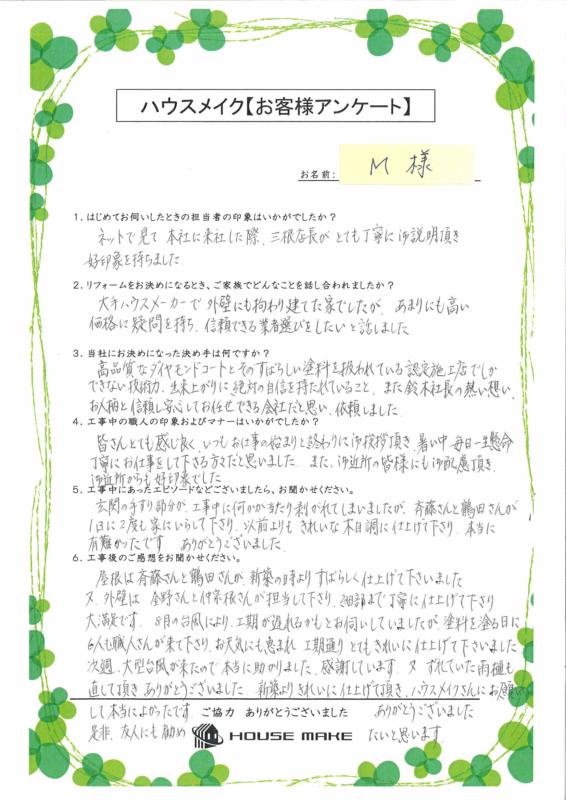 ハウスメイク【お客様アンケート】
お名前: M 様
1．はじめてお伺いしたときの担当者の印象はいかがでしたか？
ネットで見て 本社に来社した際、三根店長がとても丁寧に御説明頂き
好印象を持ちました
2．リフォームをお決めになるとき、ご家族でどんなことを話し合われましたか？
大手ハウスメーカーで 外壁にも拘わり建てた家でしたが、あまりにも高い
価格に疑問を持ち、信頼できる業者選びをしたいと話しました
3．当社にお決めになった決め手は何ですか？
高品質なダイヤモンドコートとそのすばらしい塗料を扱われている認定施工店でしか
できない技術力、出来上がりに絶対の自信を持たれていること、また鈴木社長の熱い想い、
お人柄と信頼し安心してお任せできる会社だと思い、依頼しました
4．工事中の職人の印象およびマナーはいかがでしたか？
皆さんとても感じ良く、いつもお仕事の始まりと終わりに御挨拶頂き、暑い中 毎日一生懸命
丁寧にお仕事をして下さる方々だと思いました。また、御近所の皆様にも御配慮頂き、
御近所からも好印象でした
5．工事中にあったエピソードなどございましたら、お聞かせください。
玄関の手すり部分が、工事中に何かが当たり剥がれてしまいましたが、斉藤さんと鶴田さんが
1日に2度も家にいらして下さり、以前よりもきれいな木目調に仕上げて下さり、本当に
有難かったです ありがとうございました
6．工事後のご感想をお聞かせください。
屋根は斉藤さんと鶴田さんが、新築の時よりすばらしく仕上げて下さいました
又、外壁は 金野さんと さんが担当して下さり、細部まで丁寧に仕上げて下さり
大満足です。8月の台風により、工期が遅れるかもとお伺いしていましたが、塗料を塗る日に
6人も職人さんが来て下さり、お天気にも恵まれ 工期通り とてもきれいに仕上げて下さいました
次週、大型台風が来たので本当に助かりました、感謝しています 又 ずれていた雨樋も
直して頂き ありがとうございました 新築よりきれいに仕上げて頂き、ハウスメイクさんにお願い
して本当によかったです ご協力 ありがとうございました ありがとうございました
是非、友人にも勧め HOUSE MAKE たいと思います